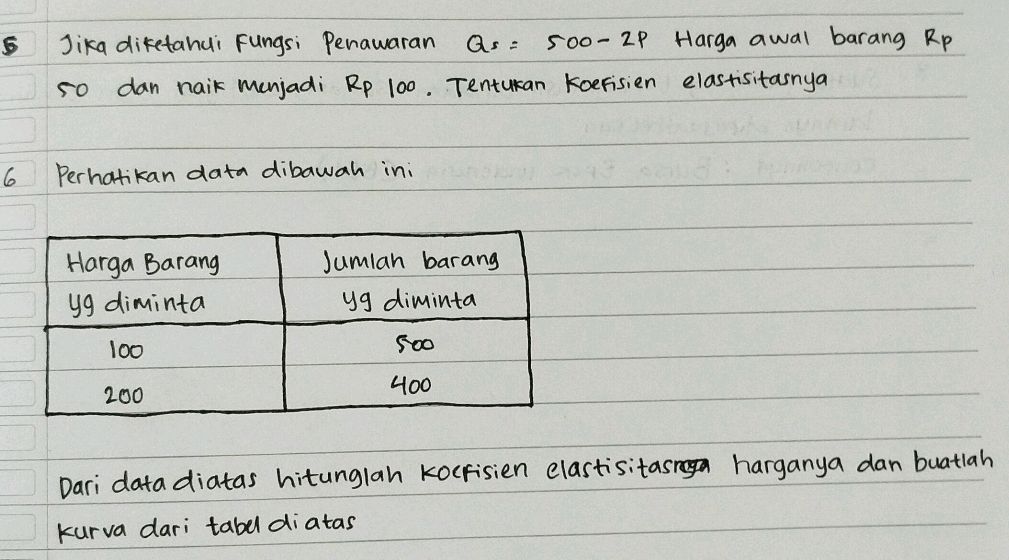 5 Jika diketahui Fungsi Penawaran Qs = 500 - 2P Harga awal barang Rp
50 dan naik menjadi Rp 100. Tentukan Koefisien elastisitasnya
6 Perhatikan data dibawah ini
Harga Barang yg diminta Jumlah barang yg diminta
100 500
200 400
Dari data diatas hitunglah koefisien elastisitas harganya dan buatlah
kurva dari tabel diatas